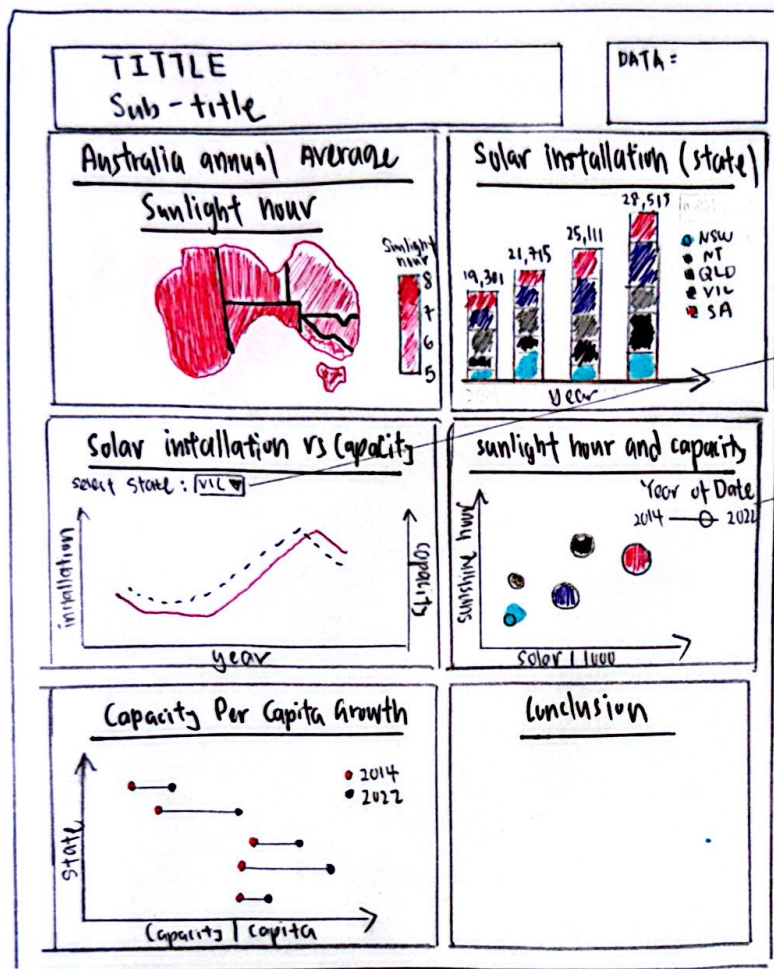 TITTLE
Sub-title
DATA:
Australia annual Average
Sunlight hour
Sunlight
hour
8
7
6
5
Solar installation (state)
19,301
21,715
25,111
28,513
NSW
NT
QLD
VIL
SA
year
Solar installation vs Capacity
select state: VIL
installation
capacity
year
sunlight hour and capacity
Year of Date
2014
2022
sunshine hour
solar / 1000
Capacity Per Capita Growth
2014
2022
state
Capacity / Capita
Conclusion